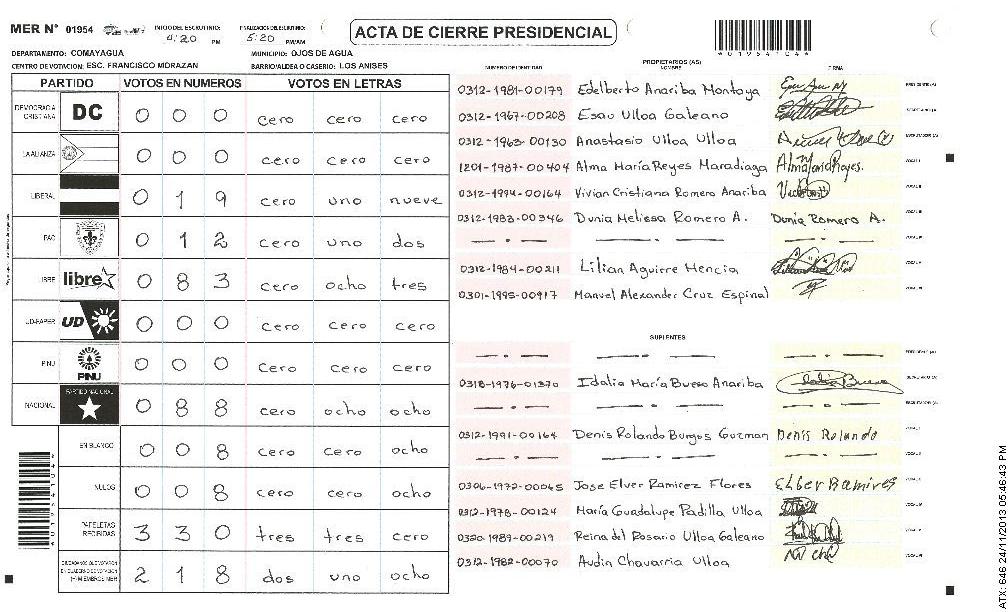 MER N° 01954 INICIO DEL ESCRUTINIO: 4:20 PM FINALIZACION DEL ESCRUTINIO: 5:20 PM/AM ACTA DE CIERRE PRESIDENCIAL *01954104*
DEPARTAMENTO: COMAYAGUA MUNICIPIO: OJOS DE AGUA
CENTRO DE VOTACION: ESC. FRANCISCO MORAZAN BARRIO/ALDEA O CASERIO: LOS ANISES
NUMERO DE IDENTIDAD PROPIETARIOS (AS) NOMBRE FIRMA
PARTIDO VOTOS EN NUMEROS VOTOS EN LETRAS
DEMOCRACIA CRISTIANA DC 0 0 0 cero cero cero
LA ALIANZA 0 0 0 cero cero cero
LIBERAL 0 1 9 cero uno nueve
PAC 0 1 2 cero uno dos
LIBRE libre 0 8 3 cero ocho tres
UD-FAPER UD 0 0 0 cero cero cero
PINU PINU 0 0 0 cero cero cero
NACIONAL PARTIDO NACIONAL 0 8 8 cero ocho ocho
EN BLANCO 0 0 8 cero cero ocho
NULOS 0 0 8 cero cero ocho
PAPELETAS RECIBIDAS 3 3 0 tres tres cero
CIUDADANOS QUE VOTARON EN CUADERNO DE VOTACION (+) MIEMBROS MER 2 1 8 dos uno ocho
0312-1981-00179 Edelberto Anariba Montoya
0312-1967-00208 Esau Ulloa Galeano
0312-1963-00130 Anastasio Ulloa Ulloa
1201-1987-00404 Alma María Reyes Maradiaga Alma María Reyes.
0312-1994-00164 Vivian Cristiana Romero Anariba
0312-1983-00346 Dunia Melissa Romero A. Dunia Romero A.
— . — — . — — . —
0312-1984-00211 Lilian Aguirre Mencia
0301-1995-00917 Manuel Alexander Cruz Espinal
SUPLENTES
— . — — . — — . —
0318-1976-01370 Idalia María Bueso Anariba Idalia Bueso
— . — — . — — . —
0312-1991-00164 Denis Rolando Burgos Guzman Denis Rolando
— . — — . — — . —
0306-1972-00065 Jose Elver Ramirez Flores Elber Ramires
0312-1978-00124 María Guadalupe Padilla Ulloa
0320-1989-00219 Reina del Rosario Ulloa Galeano
0312-1982-00070 Audin Chavarria Ulloa
*019541041*
ATX: 646 24/11/2013 05:46:43 PM